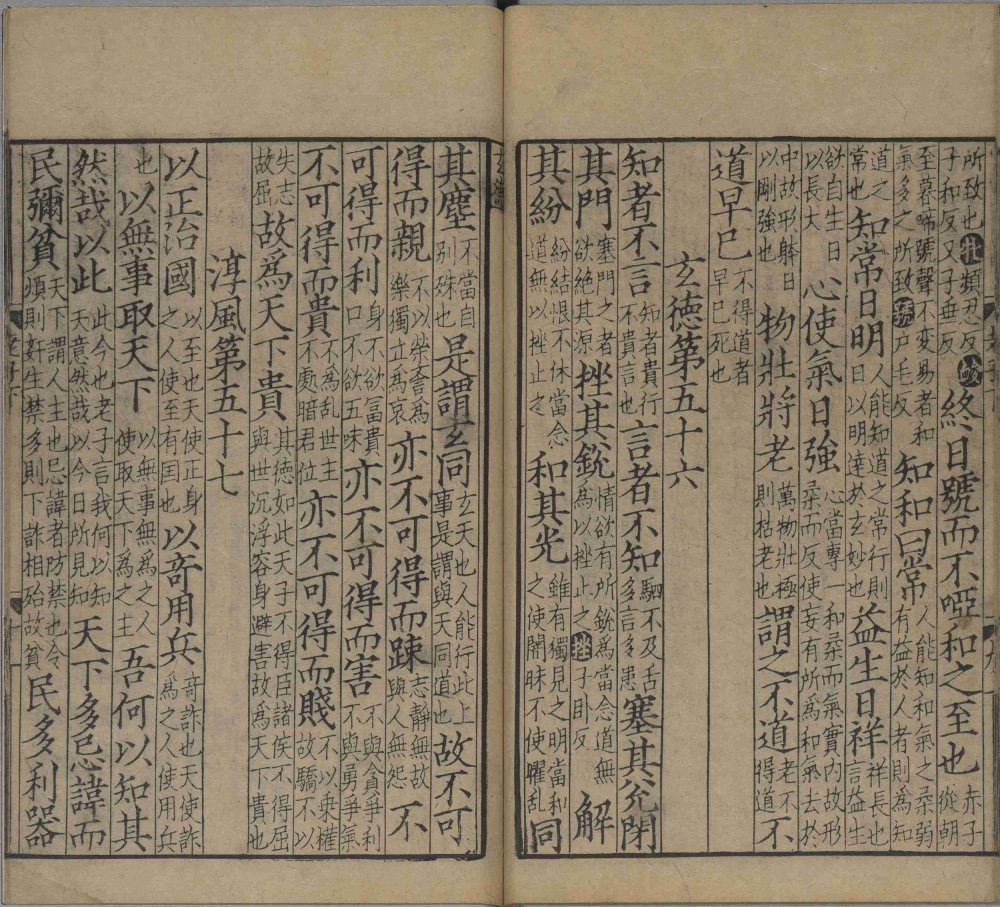 所致也牡頻忍反峻子和反又子垂反終日號而不啞和之至也赤子從朝
至暮啼號聲不變易者和氣多之所致號戶毛反知和曰常人能知和氣之柔弱有益於人者則為知
道之常也知常日明人能知道之常行則日以明達於玄妙也益生日祥祥長也言益生
欲自生日以長大心使氣日強心當專一和柔而氣實内故形柔而反使妄有所為和氣去於
中故形躰日以剛強也物壯將老萬物壯極則枯老也謂之不道老不得道不
道早已不得道者早已死也
玄德第五十六
知者不言知者貴行不貴言也言者不知駟不及舌多言多患塞其兊閉
其門塞門之者欲絶其源挫其銳情欲有所銳為當念道無為以挫止之挫子卧反解
其紛紛結恨不休當念道無以挫止之和其光雖有獨見之明當和之使闇昧不使曜乱同
其塵不當自別殊也是謂玄同玄天也人能行此上事是謂與天同道也故不可
得而親不以榮誉為樂獨立為哀亦不可得而踈志靜無故與人無怨不
可得而利身不欲富貴口不欲五味亦不可得而害不與貪爭利不與勇爭氣
不可得而貴不為乱世主不處暗君位亦不可得而賤不以乗權故驕不以
失志故屈故爲天下貴其徳如此天子不得臣諸侯不得屈與世沉浮容身避害故為天下貴也
淳風第五十七
以正治國以至也天使正身之人使至有国也以奇用兵奇詐也天使詐為之人使用兵
也以無事取天下以無事無為之人使取天下為之主吾何以知其
然哉以此此今也老子言我何以知天意然哉以今日所見知天下多忌諱而
民彌貧天下謂人主也忌諱者防禁也令煩則奸生禁多則下詐相殆故貧民多利器